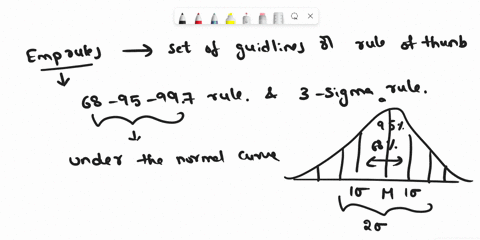 Emprules → set of guidlines or rule of thumb
68-95-99.7 rule. & 3-sigma rule.
under the normal curve
95%
68%
1σ M 1σ
2σ